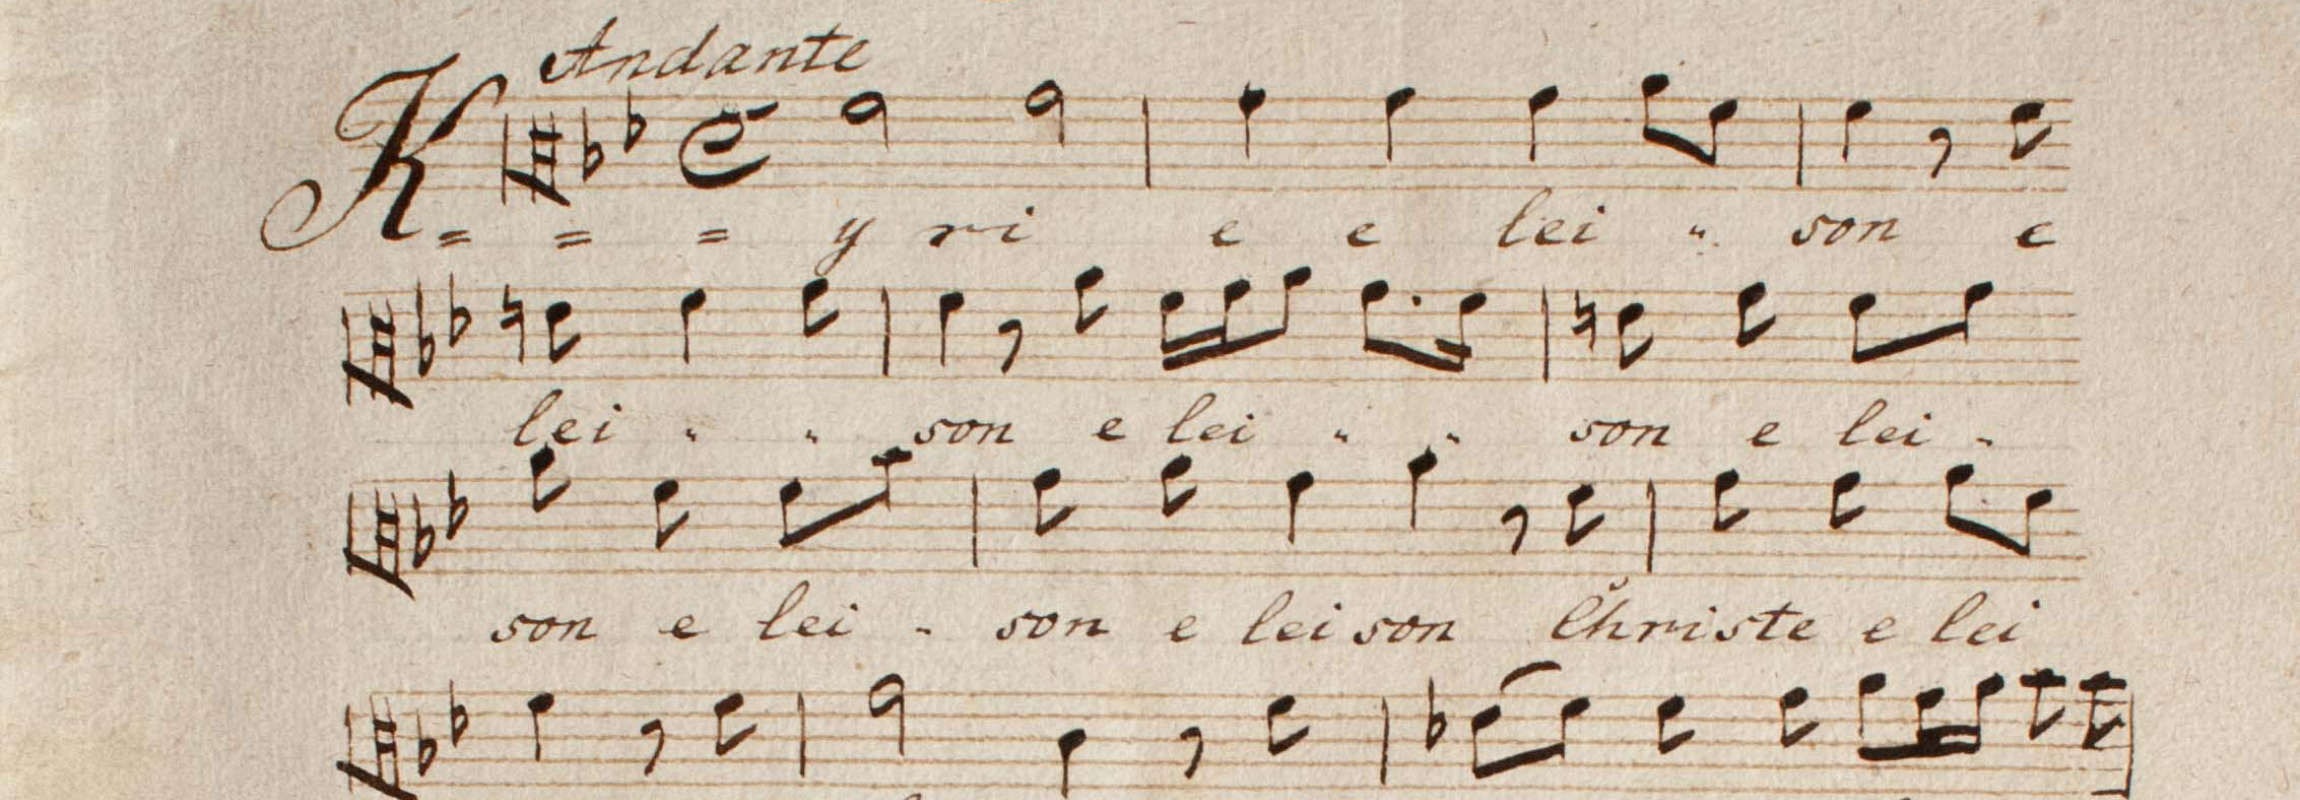 Andante
K = = = y ri e e lei " son e
lei " " son e lei " " son e lei -
son e lei - son e lei son Christe e lei